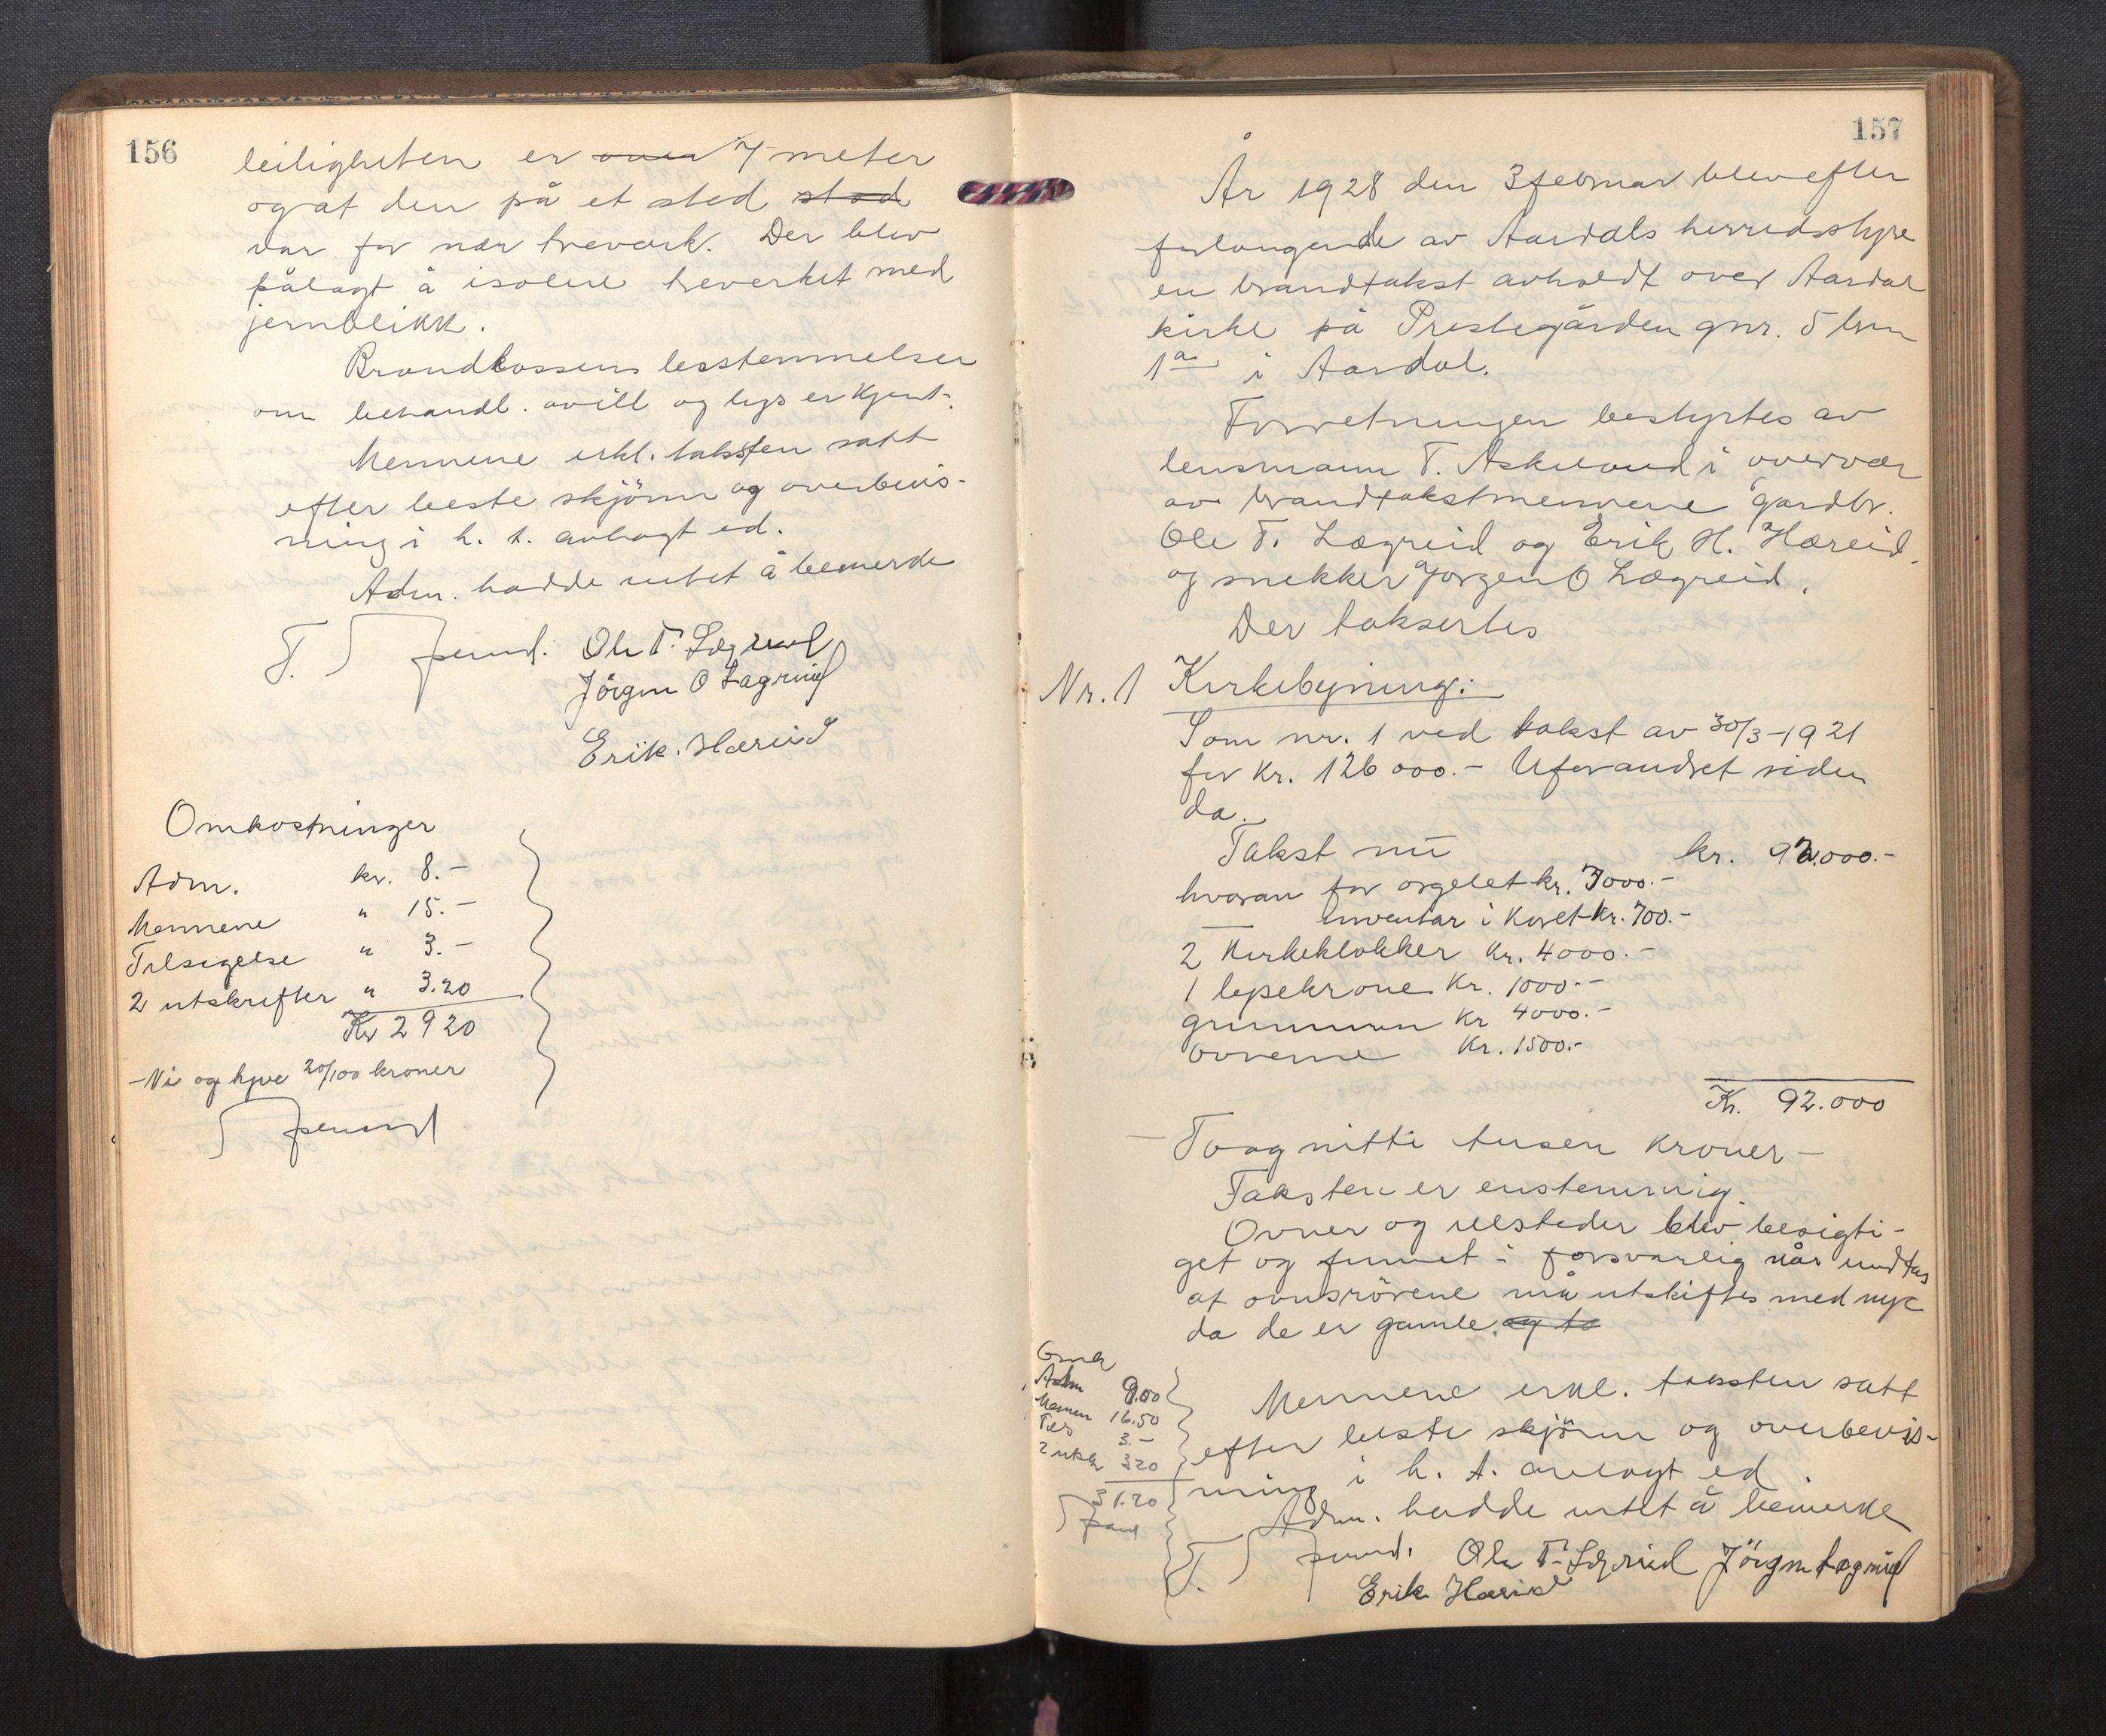 156
leiligheten er over 7 meter
og at den på et sted stod
var for nær treverk. Der blev
pålagt å isolere treverket med
jernblikk.
Brandkassens besstemmelser
om behandl. av ill og lys er kjent.
Mennene erkl. taksten satt
efter beste skjönn og overbevis-
ning i h. t. avlagt ed.
Adm. hadde intet å bemerke
T. Ole T. Lægreid
Jörgen O Lægreid
Erik. Hæreid
Omkostninger
Adm. kr. 8.-
Mennene " 15.-
Tilsigelse " 3.-
2 utskrifter " 3.20
Kr 29 20
-Ni og tyve 20/100 kroner
157
År 1928 den 3 februar blev efter
forlangende av Aardals herredsstyre
en brandtakst avholdt over Aardal
kirke på Prestegården gnr. 5 brn
1a i Aardal.
Forretningen bestyrtes av
lensmann T. Askelund i overvær
av brandtakstmennene gardbr.
Ole T. Lægreid og Erik H. Hæreid.
og snekker Jørgen O Lægreid.
Der taksertes
Nr. 1 Kirkebyning:
Som nr. 1 ved takst av 30/3-1921
for kr. 126000.- Uforandret siden
da.
Takst nu kr. 92.000.-
hvorav for orgelet kr. 7000.-
— inventar i koret kr. 700.-
2 Kirkeklokker kr. 4000.-
1 lysekrone kr. 1000.-
grunnmuren kr 4000.-
ovnerne kr. 1500.-
Kr. 92.000
- To og nitti tusen kroner -
Taksten er enstemmig.
Ovner og illsteder blev besigti-
get og funnet i forsvarlig når undtas
at ovnsrörene må utskiftes med nye
da de er gamle. og to
Omk
Adm 9.00
Mennen 16.50
Tils 3.-
2 utskr 3.20
31.20
Mennene erkl. taksten satt
efter beste skjönn og overbevis-
ning i h. t. avlagt ed.
Adm. hadde intet å bemerke
T. Ole T. Lægreid Jörgen Lægreid
Erik Hæreid